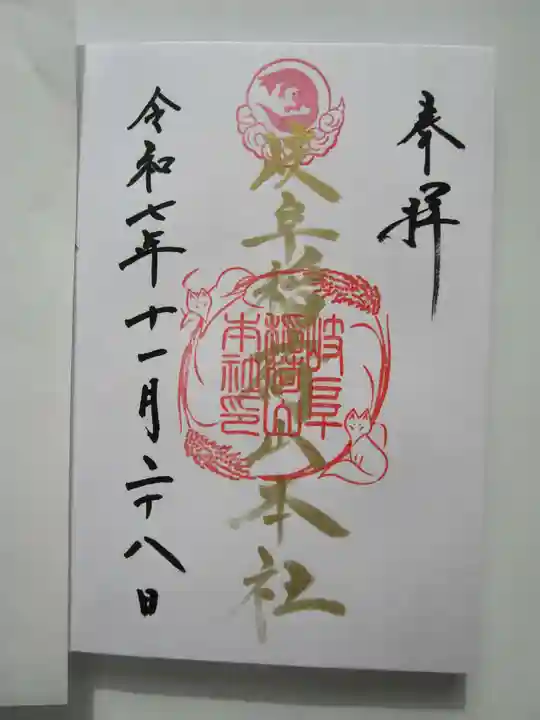 奉拝
岐阜稲荷山本社
岐阜
稲荷山
本社印
令和七年十一月二十八日